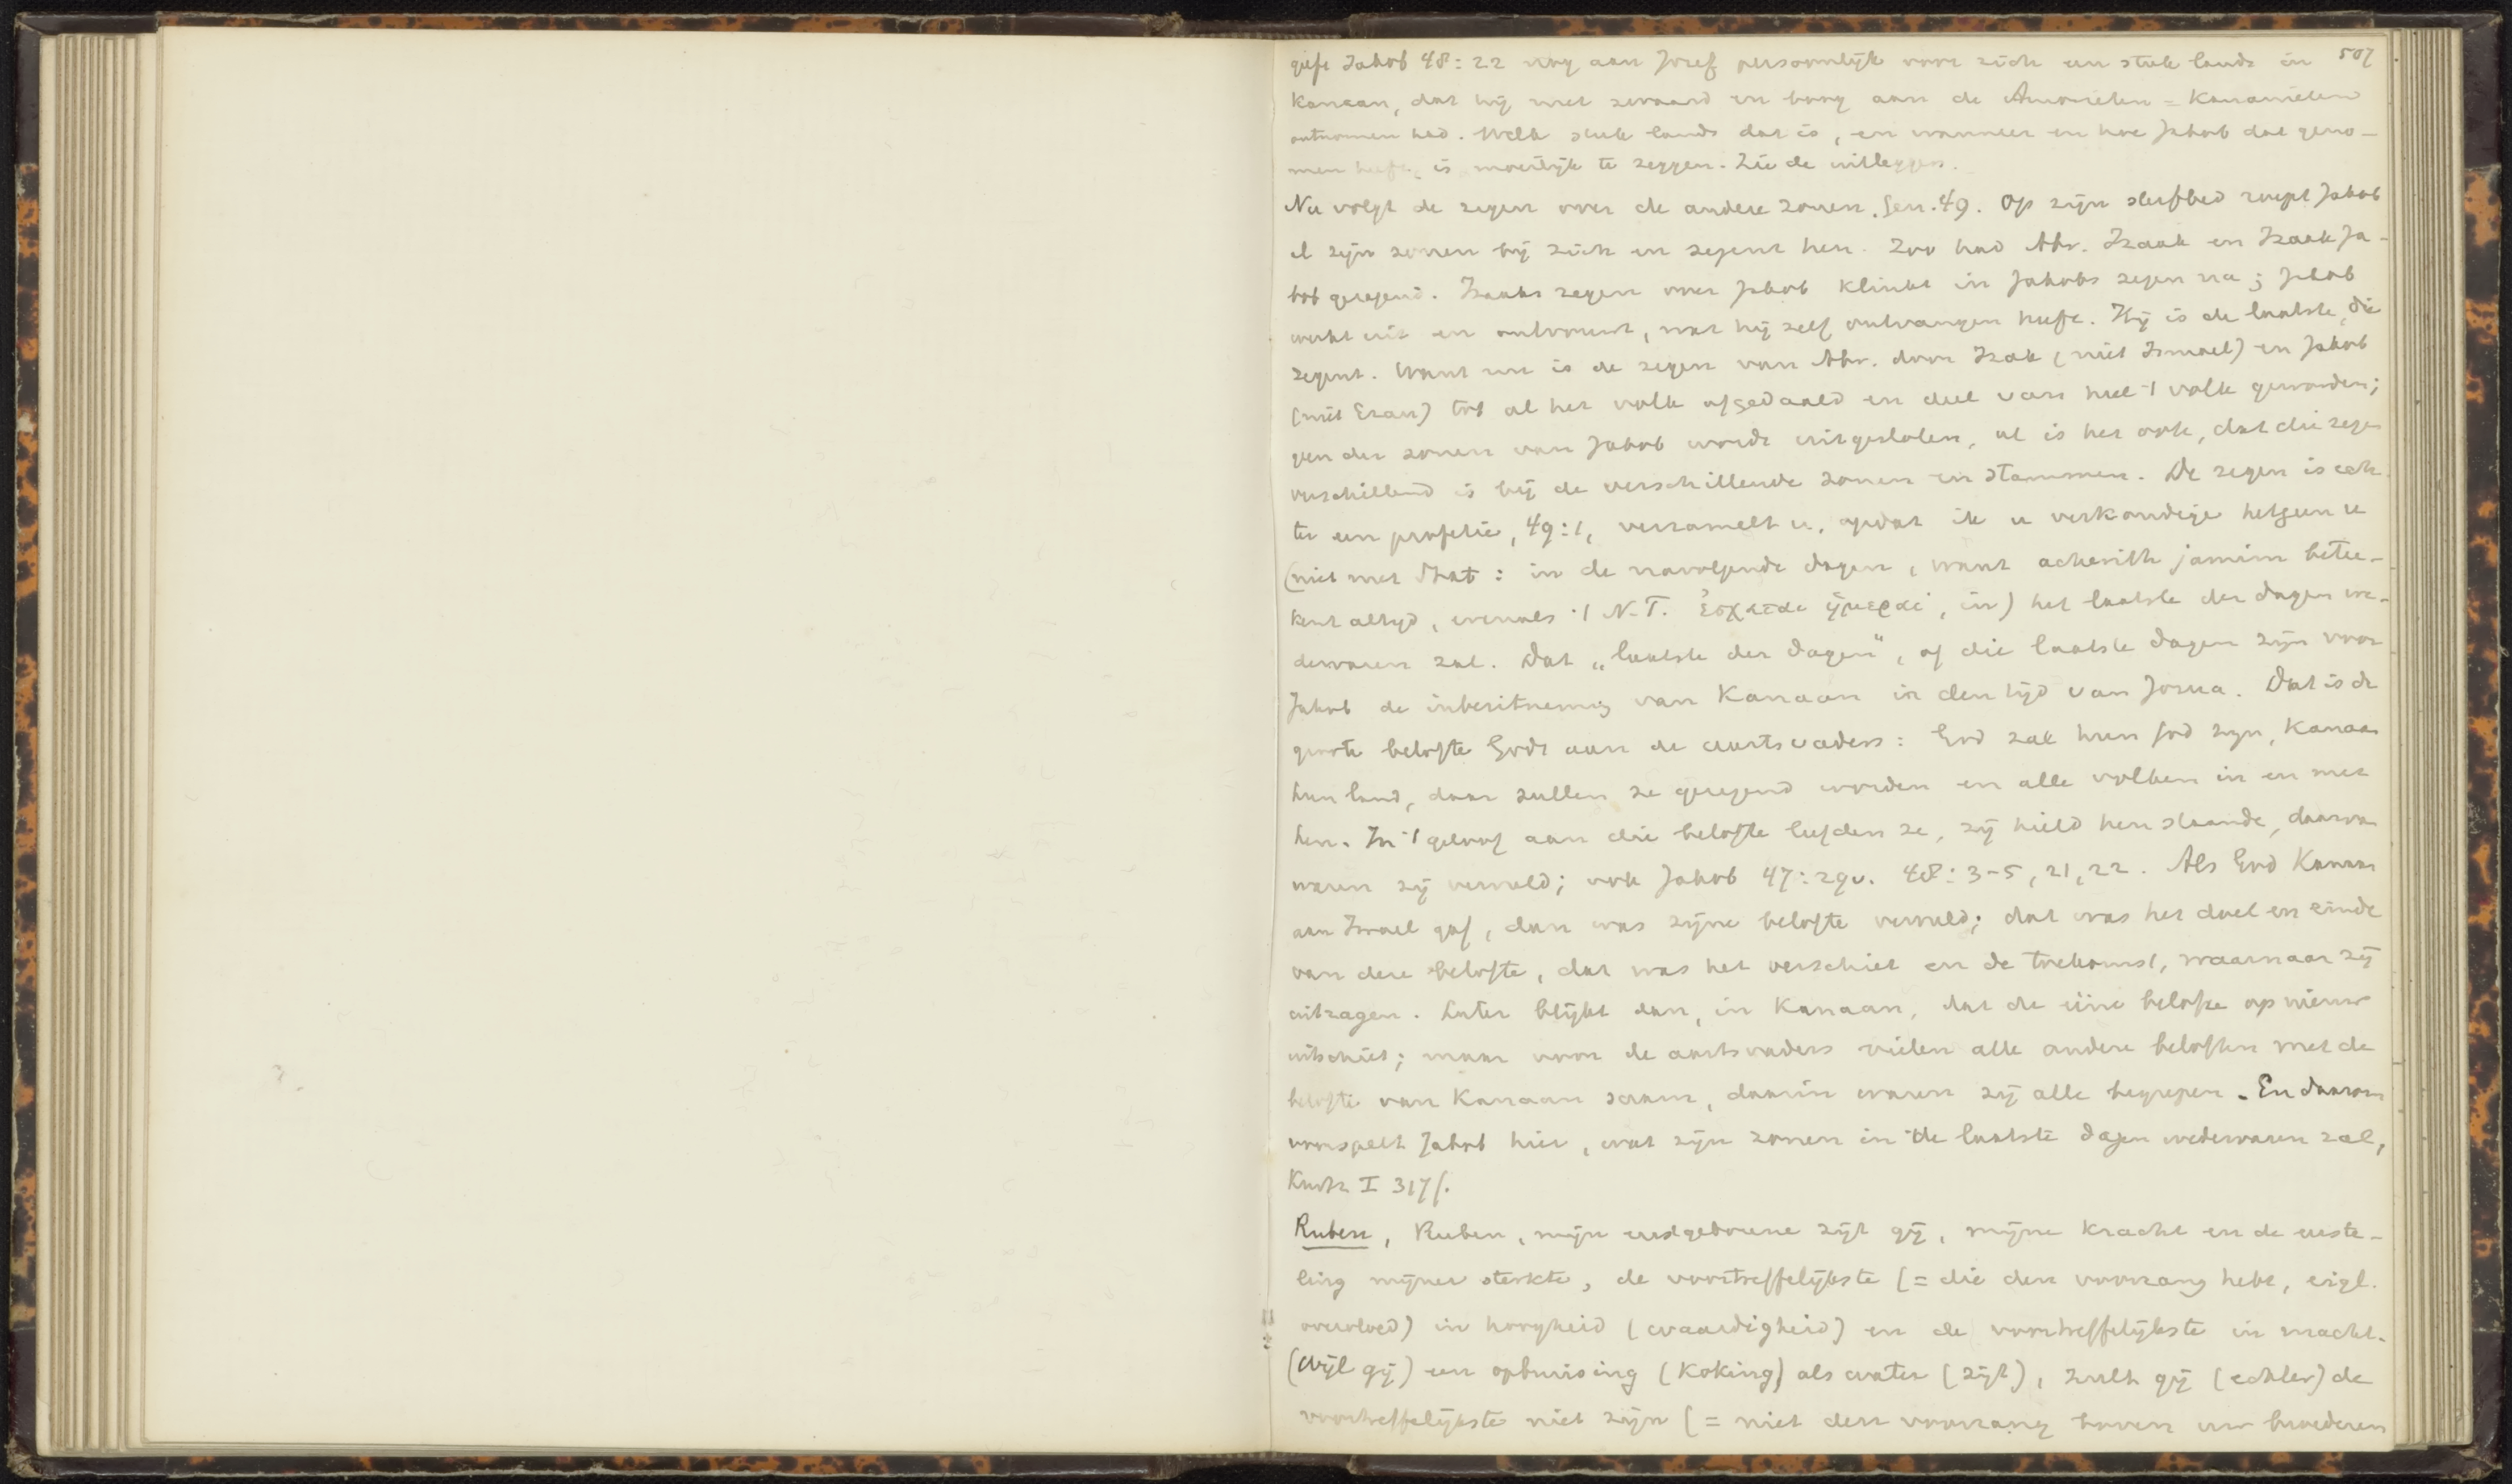 507
geeft Jakob 48:22 nog aan Jozef persoonlijk voor zich een stuk lands in
Kanaan, dat hij met zwaard en boog aan de Amorieten = Kananieten
ontnomen had. Welk stuk lands dat is, en wanneer en hoe Jakob dat geno-
men heeft, is moeilijk te zeggen. Zie de uitleggers.
Nu volgt de zegen over de andere zonen. Gen. 49. Op zijn sterfbed roept Jakob
al zijn zonen bij zich en zegent hen. Zoo had Abr. Izaak en Izaak Ja-
kob gezegend. Izaaks zegen over Jakob klinkt in Jakobs zegen na; Jakob
werkt uit en ontvouwt, wat hij zelf ontvangen heeft. Hij is de laatste, die
zegent. Want nu is de zegen van Abr. door Izak (niet Ismael) en Jakob
(niet Ezau) tot al het volk afgedaald en deel van heel 't volk geworden;
geen der zonen van Jakob wordt uitgesloten, al is het ook, dat die zegen
verschillend is bij de verschillende zonen en stammen. De zegen is ech-
ter een profetie, 49:1, verzamelt u, opdat ik u verkondige hetgeen u
(niet met Stat: in de navolgende dagen, want acherith jamim betee-
kent altijd, evenals 't N.T. ἔσχαται ἡμέραι, in) het laatste der dagen we-
dervaren zal. Dat „laatste der dagen", of die laatste dagen zijn voor
Jakob de inbezitneming van Kanaan in den tijd van Jozua. Dat is de
groote belofte Gods aan de aartsvaders: God zal hun God zijn, Kanaan
hun land, daar zullen ze gezegend worden en alle volken in en met
hen. In 't geloof aan die belofte leefden ze, zij hield hen staande, daarvan
waren zij vervuld; ook Jakob 47:29v. 48:3-5, 21, 22. Als God Kanaan
aan Israel gaf, dan was zijne belofte vervuld; dat was het doel en einde
van deze belofte, dat was het verschiet en de toekomst, waarnaar zij
uitzagen. Later blijkt dan, in Kanaan, dat de eene belofte op nieuw
uitschiet; maar voor de aartsvaders vielen alle andere beloften met de
belofte van Kanaan saam, daarin waren zij alle begrepen. En daarom
voorspelt Jakob hier, wat zijn zonen in de laatste dagen wedervaren zal,
Kurtz I 317f.
Ruben, Ruben, mijn eerstgeborene zijt gij, mijne kracht en de eerste-
ling mijner sterkte, de voortreffelijkste (= die den voorrang hebt, eigl.
overvloed) in hoogheid (waardigheid) en de voortreffelijkste in macht.
(Wijl gij) een opbruising (koking) als water (zijt), zult gij (echter) de
voortreffelijkste niet zijn (= niet den voorrang boven uw broederen